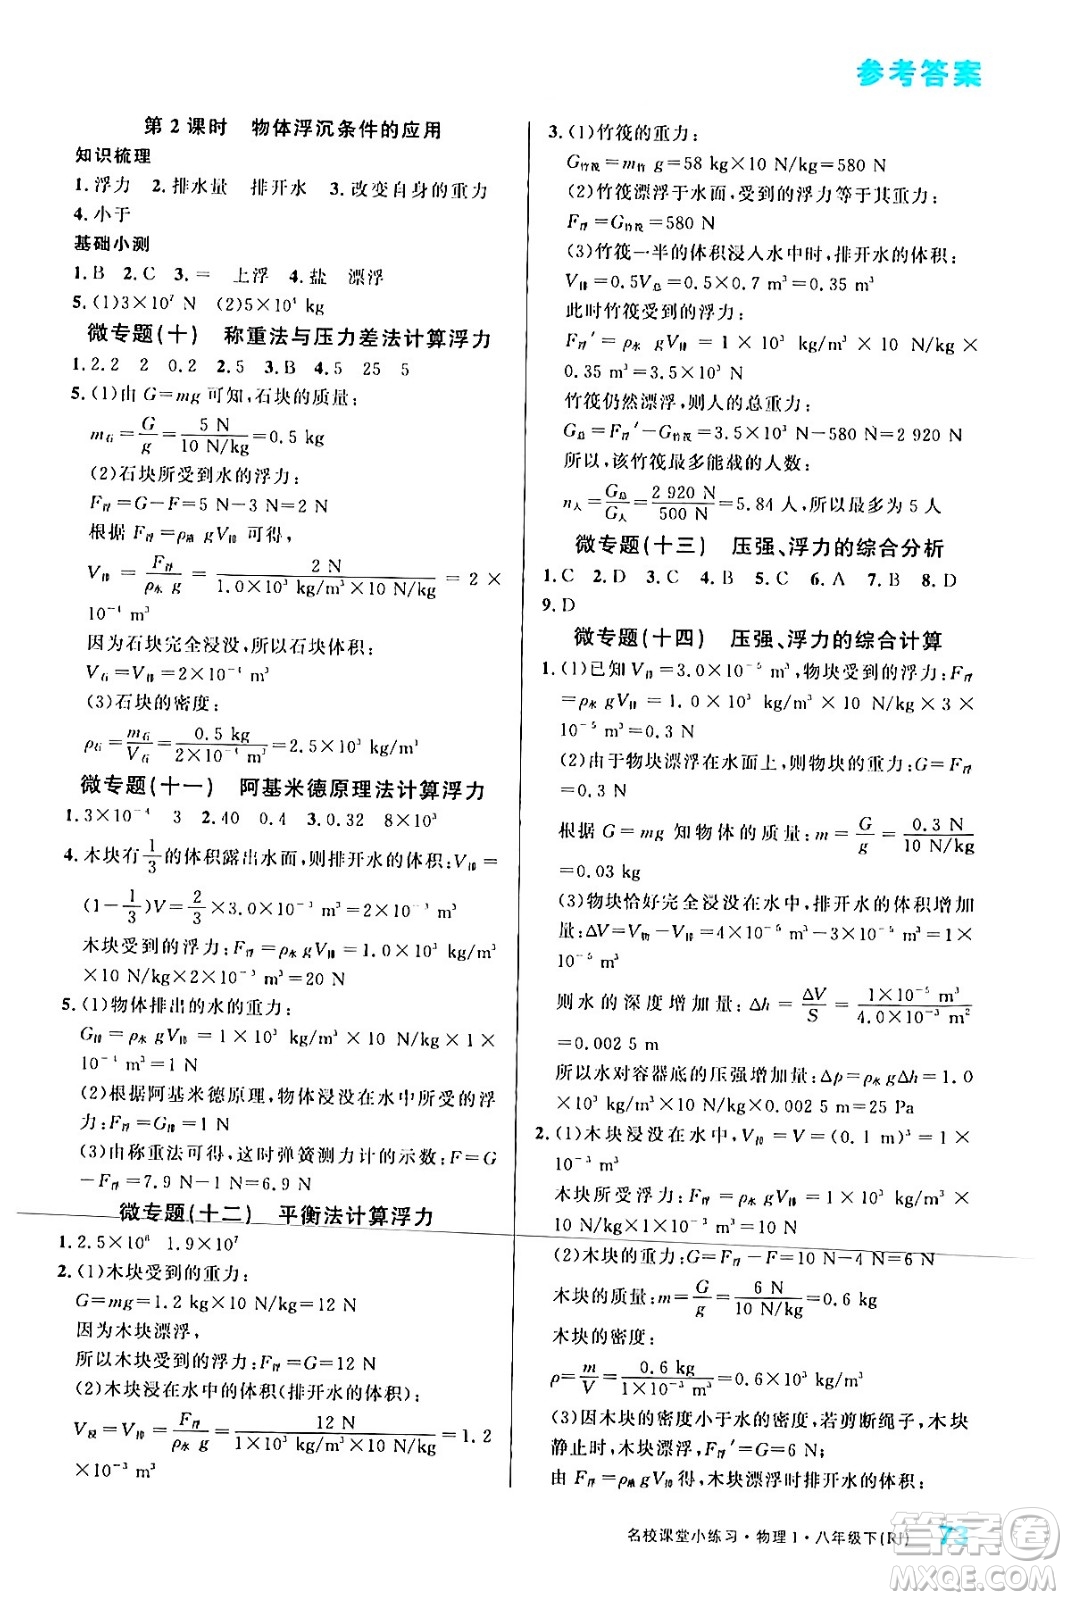 参考答案
第2课时　物体浮沉条件的应用
知识梳理
1.浮力　2.排水量　排开水　3.改变自身的重力
4.小于
基础小测
1.B　2.C　3.=　上浮　4.盐　漂浮
5.(1)3×10⁷ N　(2)5×10⁴ kg
微专题(十)　称重法与压力差法计算浮力
1.2.2　2　0.2　2.5　3.B　4.5　25　5
5.(1)由G=mg可知,石块的质量:
m石=G/g=5 N/10 N/kg=0.5 kg
(2)石块所受到水的浮力:
F浮=G－F=5 N－3 N=2 N
根据F浮=ρ液gV排可得,
V排=F浮/ρ水g=2 N/1.0×10³ kg/m³×10 N/kg=2×
10⁻⁴ m³
因为石块完全浸没,所以石块体积:
V石=V排=2×10⁻⁴ m³
(3)石块的密度:
ρ石=m石/V石=0.5 kg/2×10⁻⁴ m³=2.5×10³ kg/m³
微专题(十一)　阿基米德原理法计算浮力
1.3×10⁻⁴　3　2.40　0.4　3.0.32　8×10³
4.木块有1/3的体积露出水面,则排开水的体积:V排=
(1－1/3)V=2/3×3.0×10⁻³ m³=2×10⁻³ m³
木块受到的浮力:F浮=ρ水gV排=1.0×10³ kg/m³
×10 N/kg×2×10⁻³ m³=20 N
5.(1)物体排出的水的重力:
G排=ρ水gV排=1×10³ kg/m³×10 N/kg×1×
10⁻⁴ m³=1 N
(2)根据阿基米德原理,物体在水中所受的浮
力:F浮=G排=1 N
(3)由称重法可得,这时弹簧测力计的示数:F=G
－F浮=7.9 N－1 N=6.9 N
微专题(十二)　平衡法计算浮力
1.2.5×10⁶　1.9×10⁷
2.(1)木块受到的重力:
G=mg=1.2 kg×10 N/kg=12 N
因为木块漂浮,
所以木块受到的浮力:F浮=G=12 N
(2)木块浸在水中的体积(排开水的体积):
V浸=V排=F浮/ρ水g=12 N/1×10³ kg/m³×10 N/kg=1.2
×10⁻³ m³
3.(1)竹筏的重力:
G竹筏=m竹筏g=58 kg×10 N/kg=580 N
(2)竹筏漂浮于水面,受到的浮力等于其重力:
F浮=G竹筏=580 N
(3)竹筏一半的体积浸入水中时,排开水的体积:
V排=0.5V总=0.5×0.7 m³=0.35 m³
此时竹筏受到的浮力:
F浮′=ρ水gV排=1.0×10³ kg/m³×10 N/kg×
0.35 m³=3.5×10³ N
竹筏仍然漂浮,则人的总重力:
G总=F浮′－G竹筏=3.5×10³ N－580 N=2 920 N
所以,该竹筏最多能载的人数:
n人=G总/G人=2 920 N/500 N=5.84人,所以最多为5人
微专题(十三)　压强、浮力的综合分析
1.C　2.D　3.D　4.B　5.C　6.A　7.B　8.D
9.D
微专题(十四)　压强、浮力的综合计算
1.(1)已知V排=3.0×10⁻⁵ m³,物块受到的浮力:F浮
=ρ水gV排=1.0×10³ kg/m³×10 N/kg×3×
10⁻⁵ m³=0.3 N
(2)由于物块漂浮在水面上,物块的重力:G=F浮
=0.3 N
根据G=mg知物体的质量:m=G/g=0.3 N/10 N/kg
=0.03 kg
(3)物块恰好完全浸没在水中,排开水的体积增加
量:ΔV=V物－V排=4×10⁻⁵ m³－3×10⁻⁵ m³=1
×10⁻⁵ m³
则水的深度增加量:Δh=ΔV/S=1×10⁻⁵ m³/4.0×10⁻³ m²
=0.002 5 m
所以水对容器底的压强增加量:Δp=ρ水gΔh=1.0
×10³ kg/m³×10 N/kg×0.002 5 m=25 Pa
2.(1)木块浸没在水中,V排=V=(0.1 m)³=1×
10⁻³ m³
木块所受浮力:F浮=ρ水gV排=1.0×10³ kg/m³×
10 N/kg×1×10⁻³ m³=10 N
(2)木块的重力:G=F浮－F=10 N－4 N=6 N
木块的质量:m=G/g=6 N/10 N/kg=0.6 kg
木块的密度:
ρ=m/V=0.6 kg/1×10⁻³ m³=0.6×10³ kg/m³
(3)因木块的密度小于水的密度,若剪断绳子,木块
静止时,木块漂浮,F浮′=G=6 N;
由F浮=ρ液gV排得,木块漂浮时排开水的体积:
名校课堂小练习·物理1·八年级下(RJ)　73
答案圈
MXQE.COM